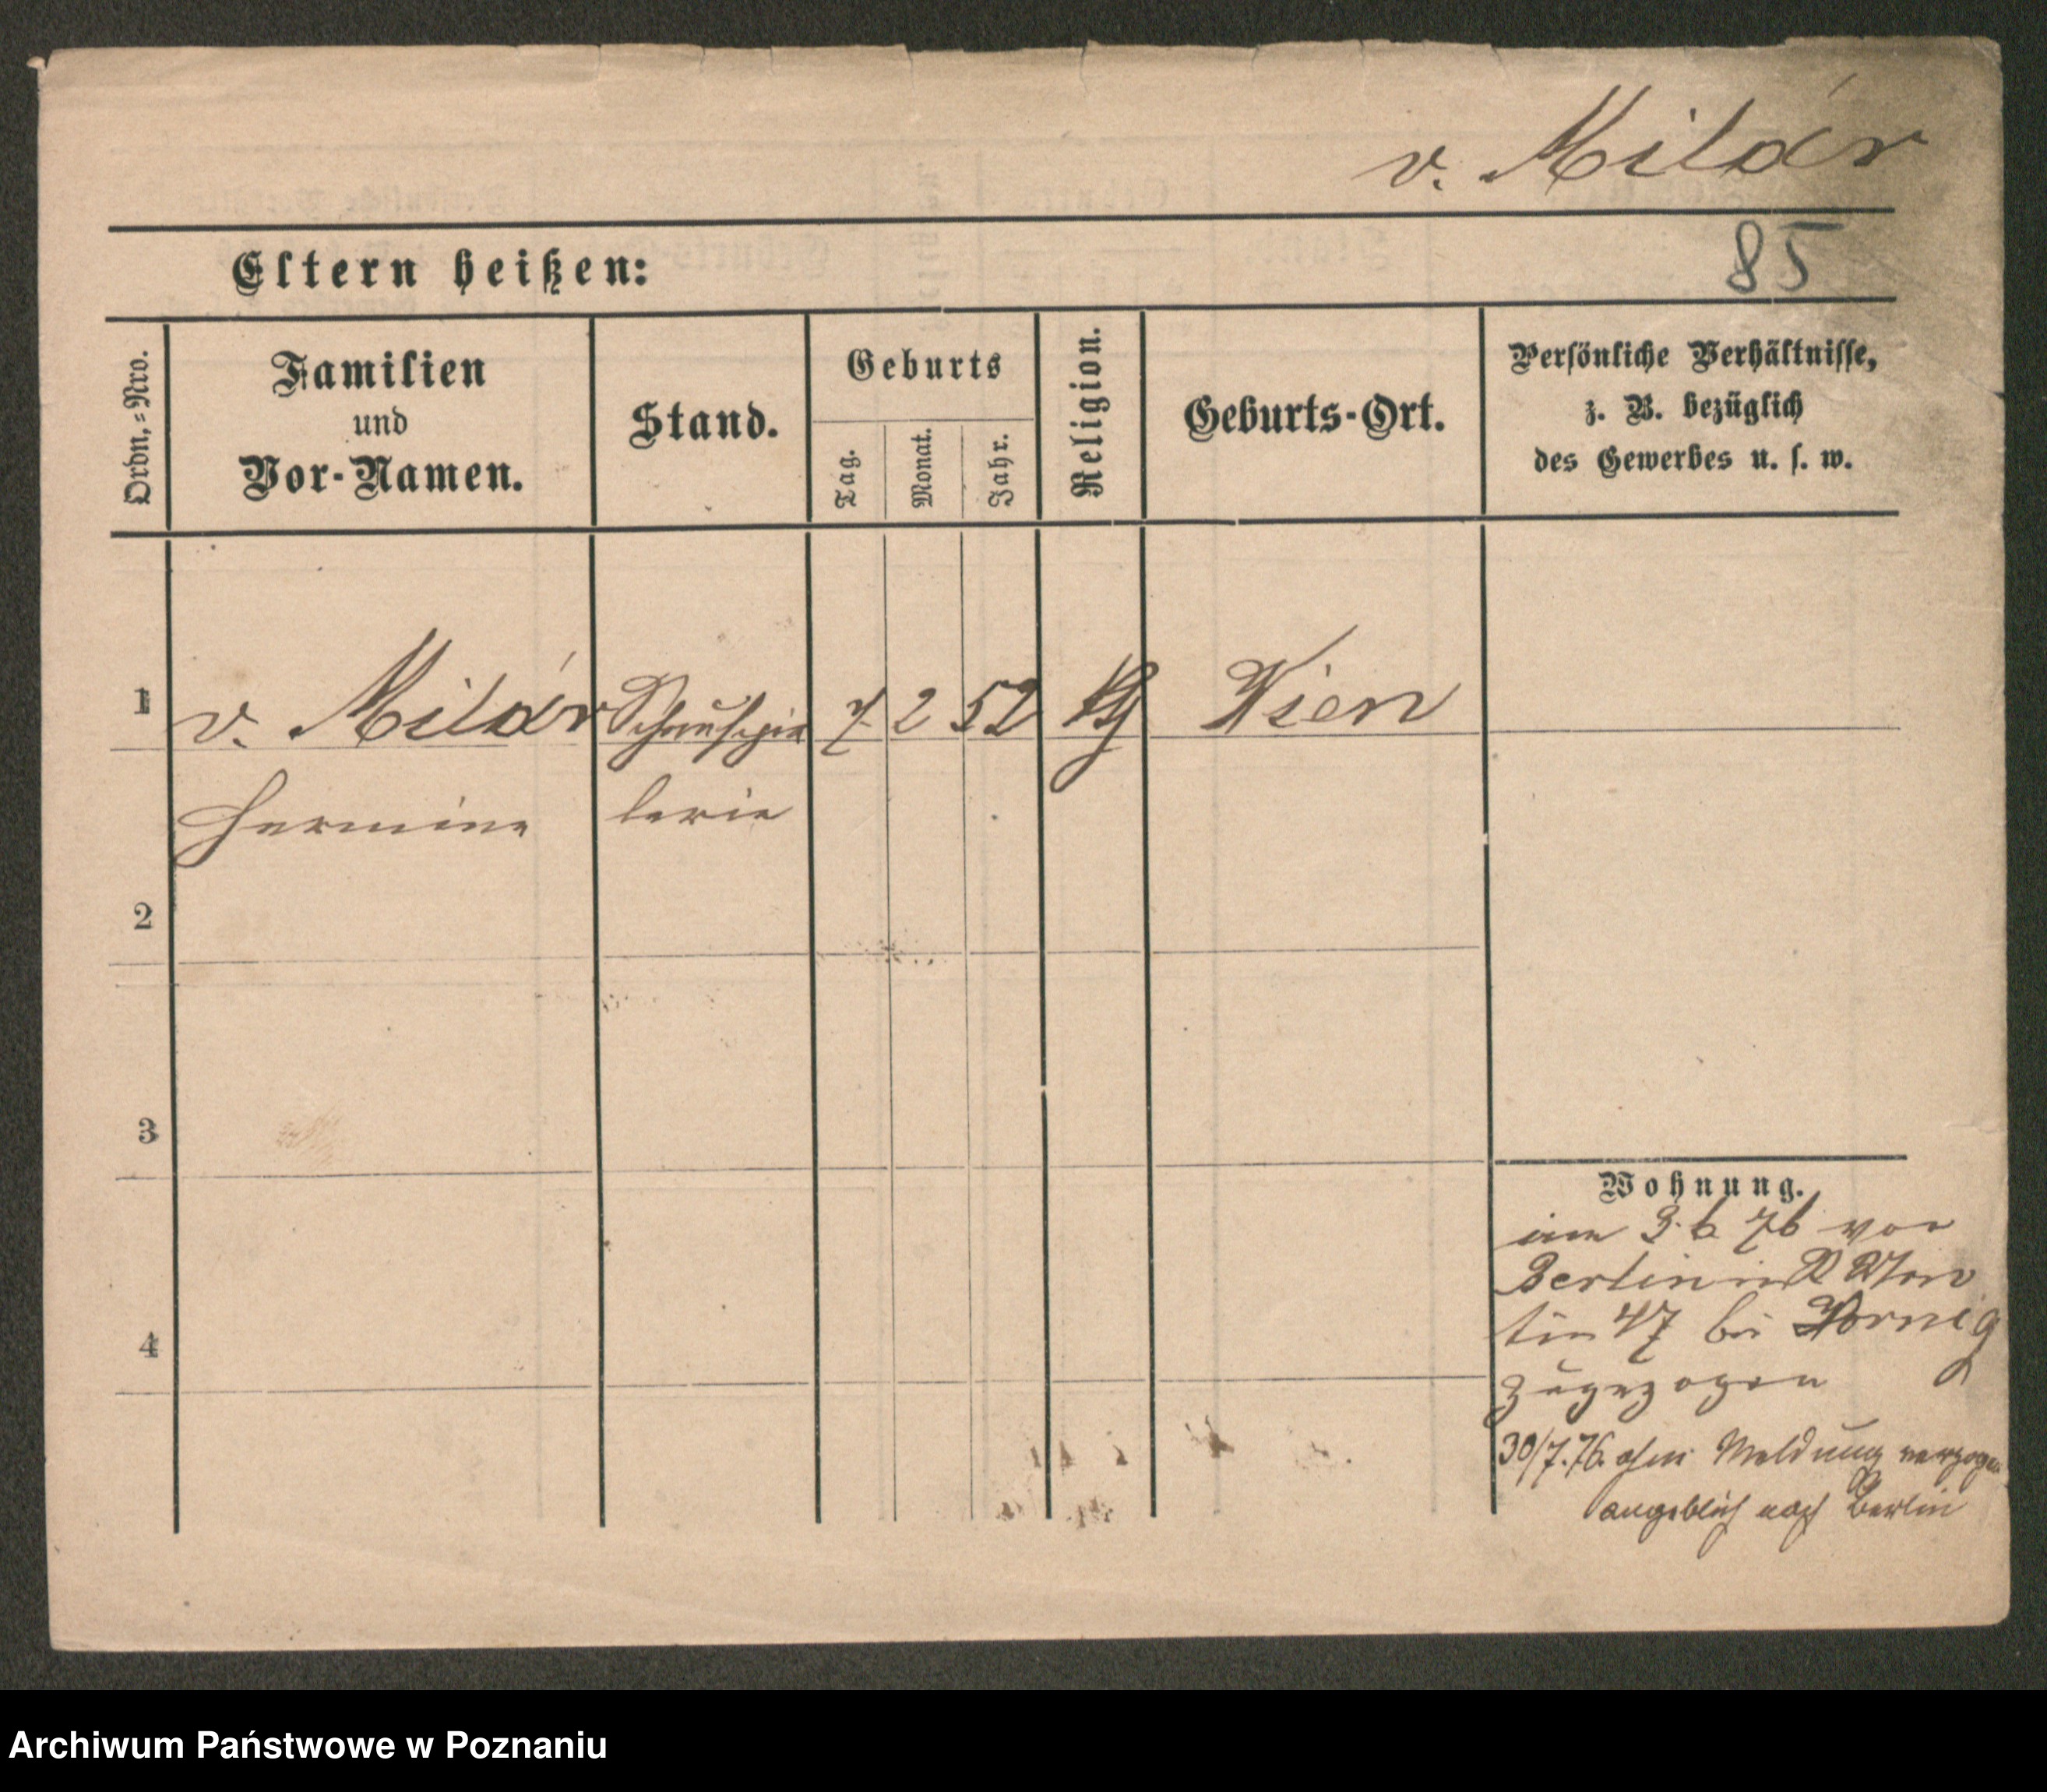 v. Milár
85
Eltern heißen:
Ordn.-Nro.
Familien
und
Vor-Namen.
Stand.
Geburts
Tag.
Monat.
Jahr.
Religion.
Geburts-Ort.
Persönliche Verhältnisse,
z. B. bezüglich
des Gewerbes u. s. w.
1 v. Milár Schauspie 7 2 52 Wien
Hermine lerin
2
3
4
Wohnung.
am 3. 6 76 von
Berlin in
tin 47 bei Hornig
zugezogen
30/7.76. ohne Meldung verzogen
angeblich nach Berlin
Archiwum Państwowe w Poznaniu